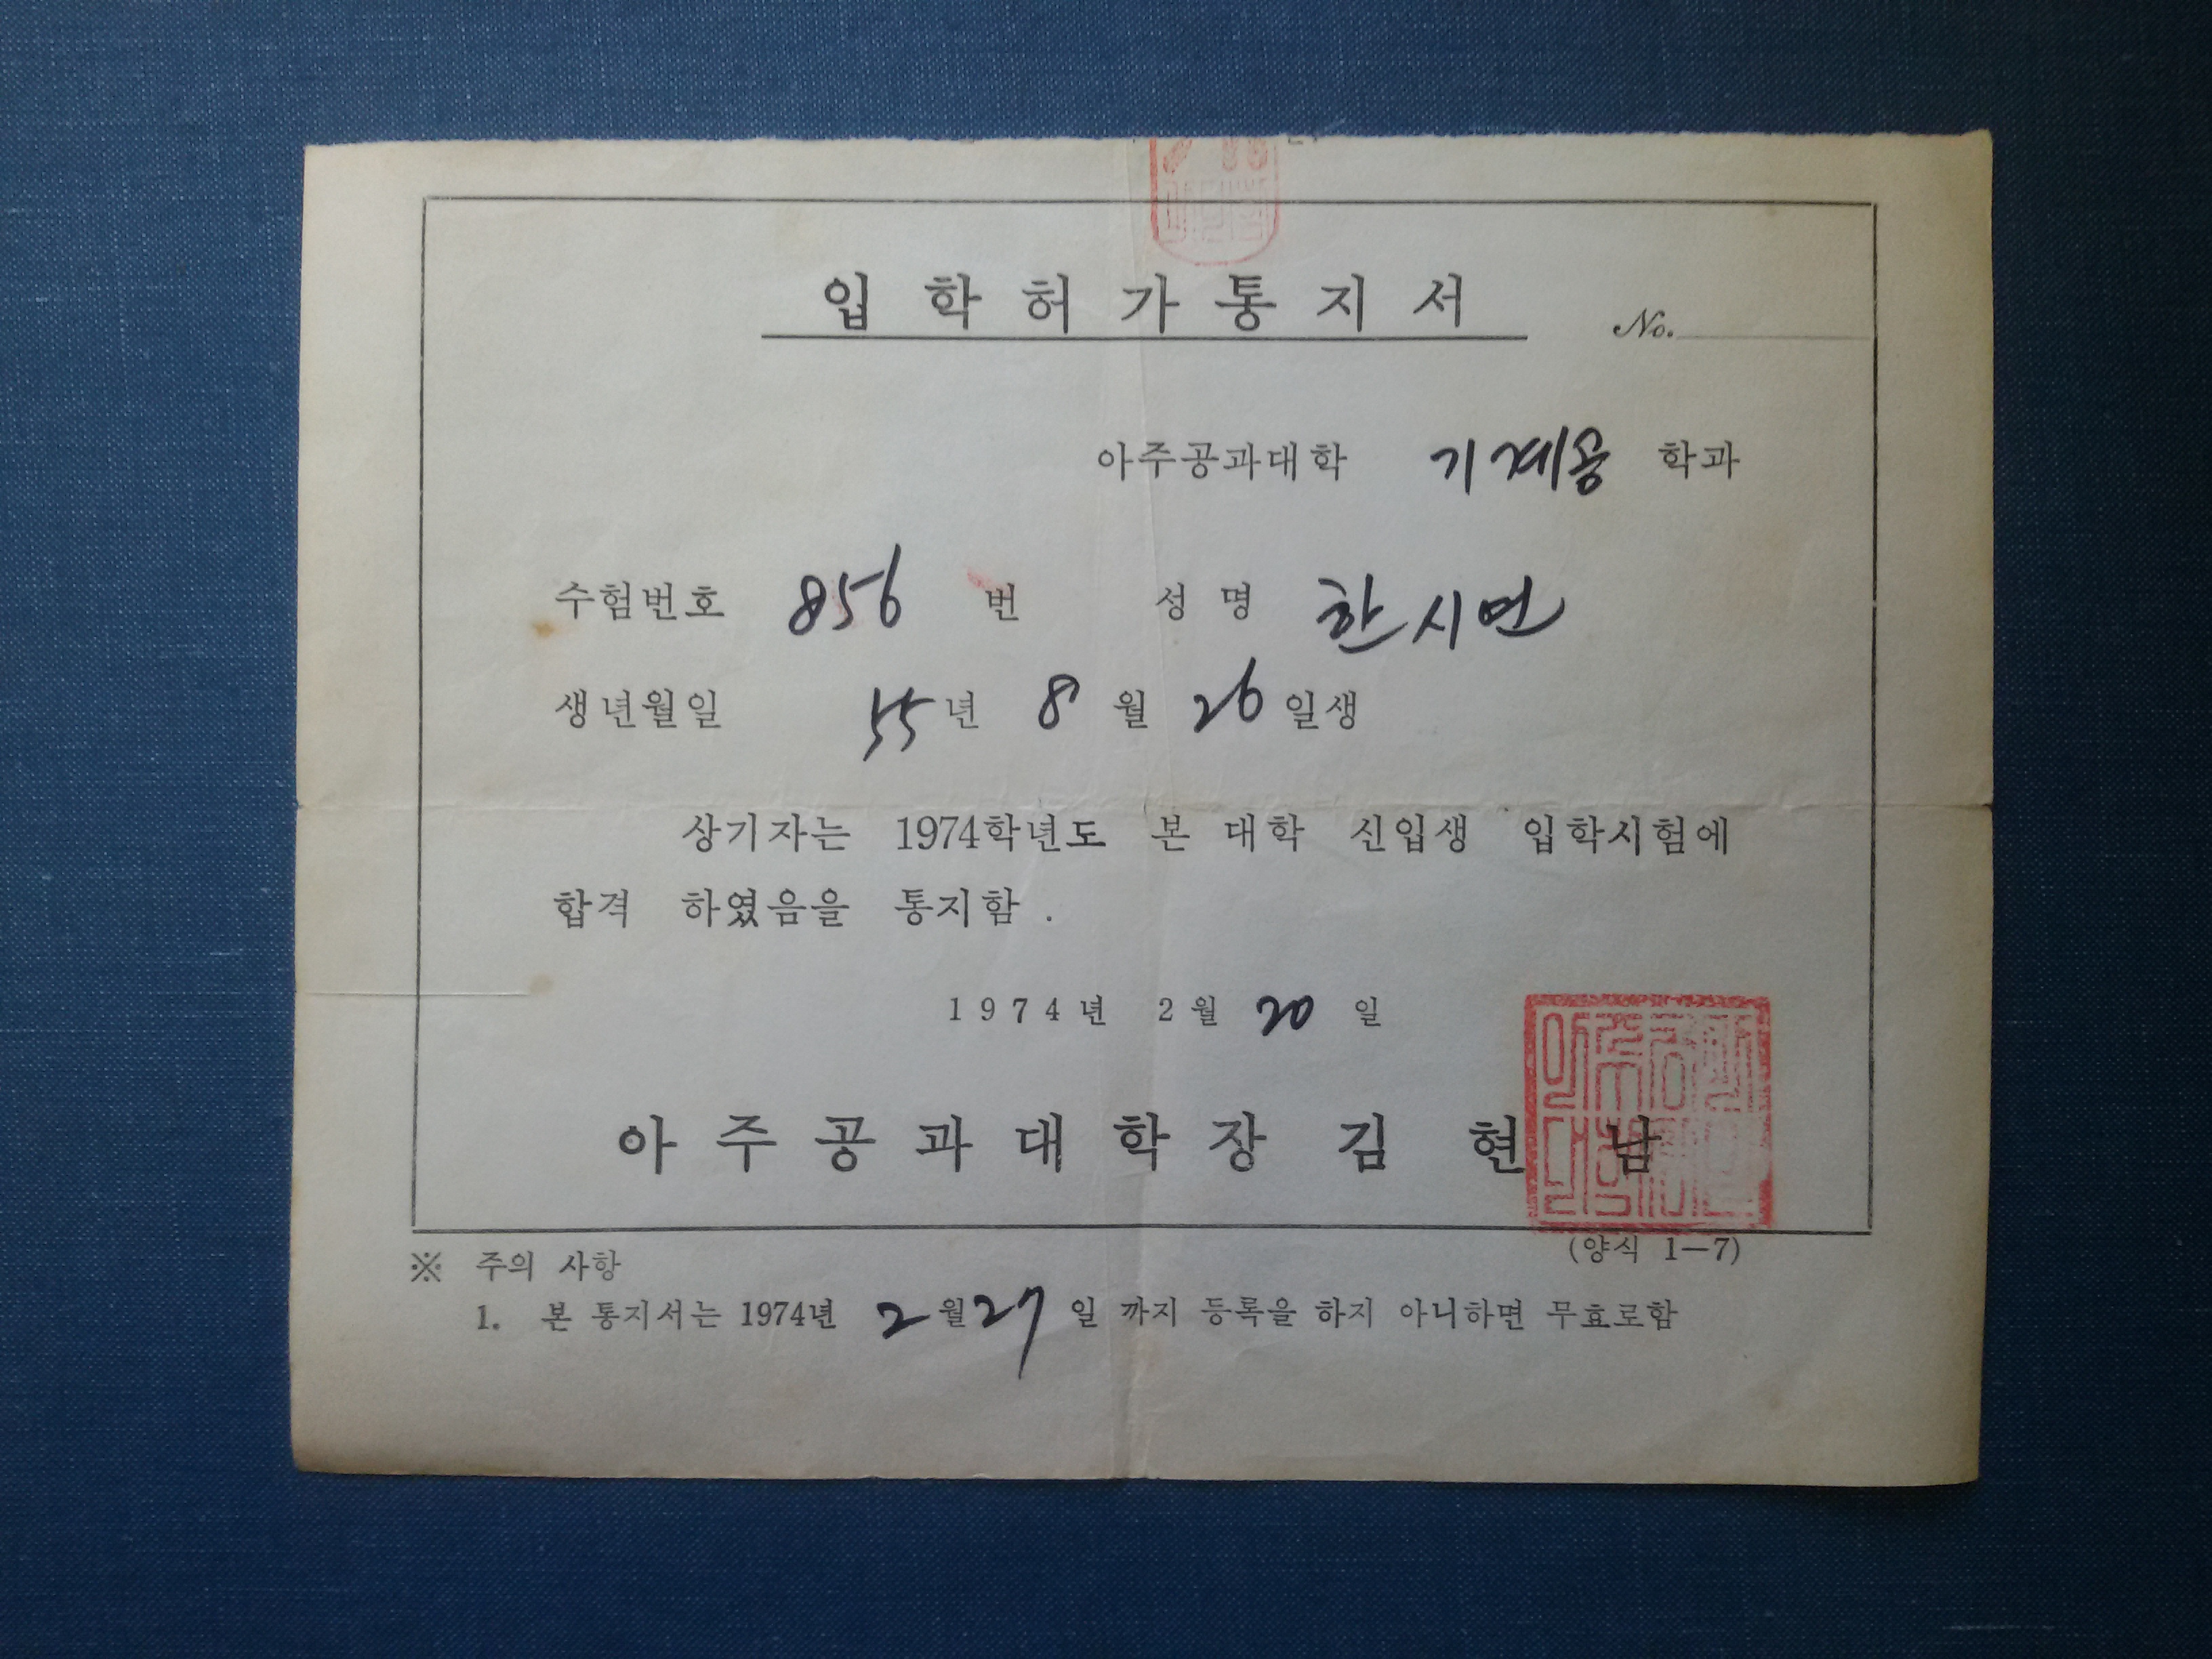 입학허가통지서
No.
아주공과대학 기계공 학과
수험번호 856 번 성명 한시연
생년월일 55년 8월 26일생
상기자는 1974학년도 본 대학 신입생 입학시험에
합격 하였음을 통지함.
1974년 2월 20일
아주공과대학장 김현남
(양식 1-7)
※ 주의 사항
1. 본 통지서는 1974년 2월 27일 까지 등록을 하지 아니하면 무효로함